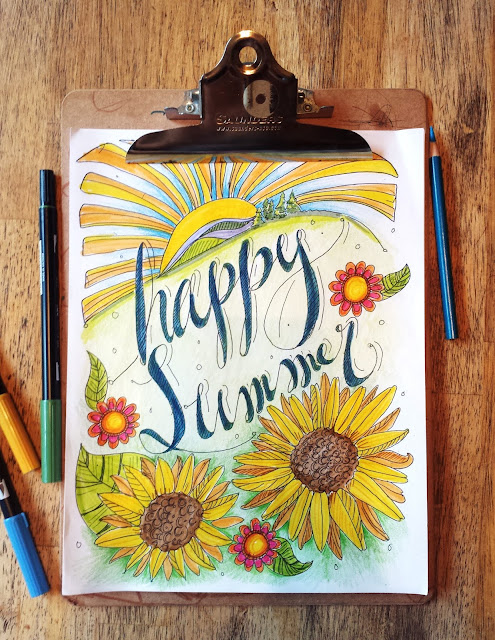 SAUNDERS
happy
Summer